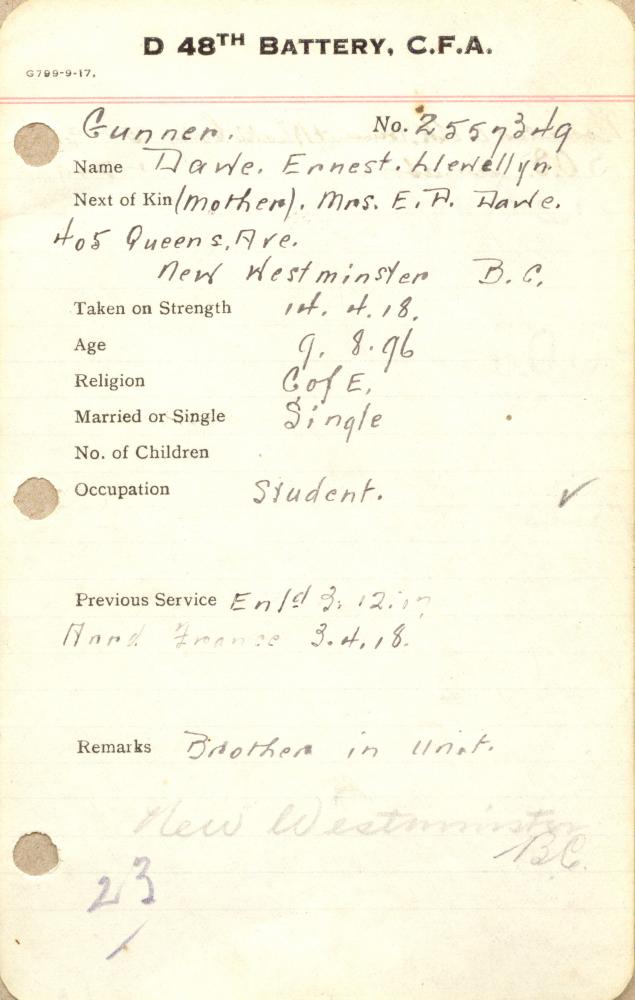 D 48TH BATTERY, C.F.A.
G799-9-17.
Gunner. No. 2557349
Name Dawe. Ernest. Llewellyn.
Next of Kin (Mother). Mrs. E. A. Dawe.
405 Queens, Ave.
New Westminster B.C.
Taken on Strength 14. 4. 18.
Age 9. 8. 96
Religion C of E,
Married or Single Single
No. of Children
Occupation Student. ✓
Previous Service Enl'd 3. 12. 17
Arrd France 3. 4. 18.
Remarks Brother in Unit.
New Westminster
B.C.
23